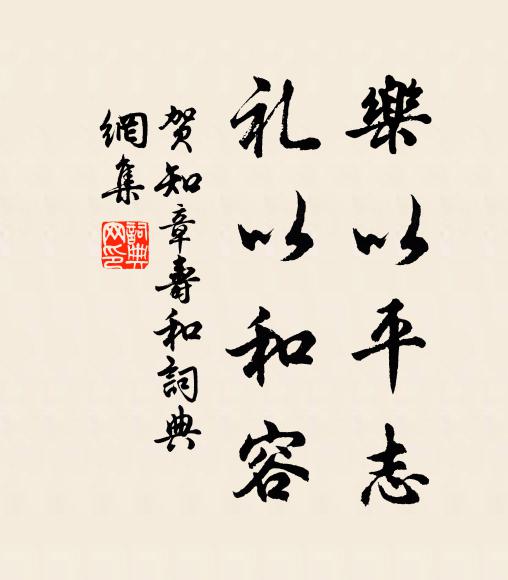 樂以平志
礼以和容
賀知章壽和詞典
網集
詞典网印